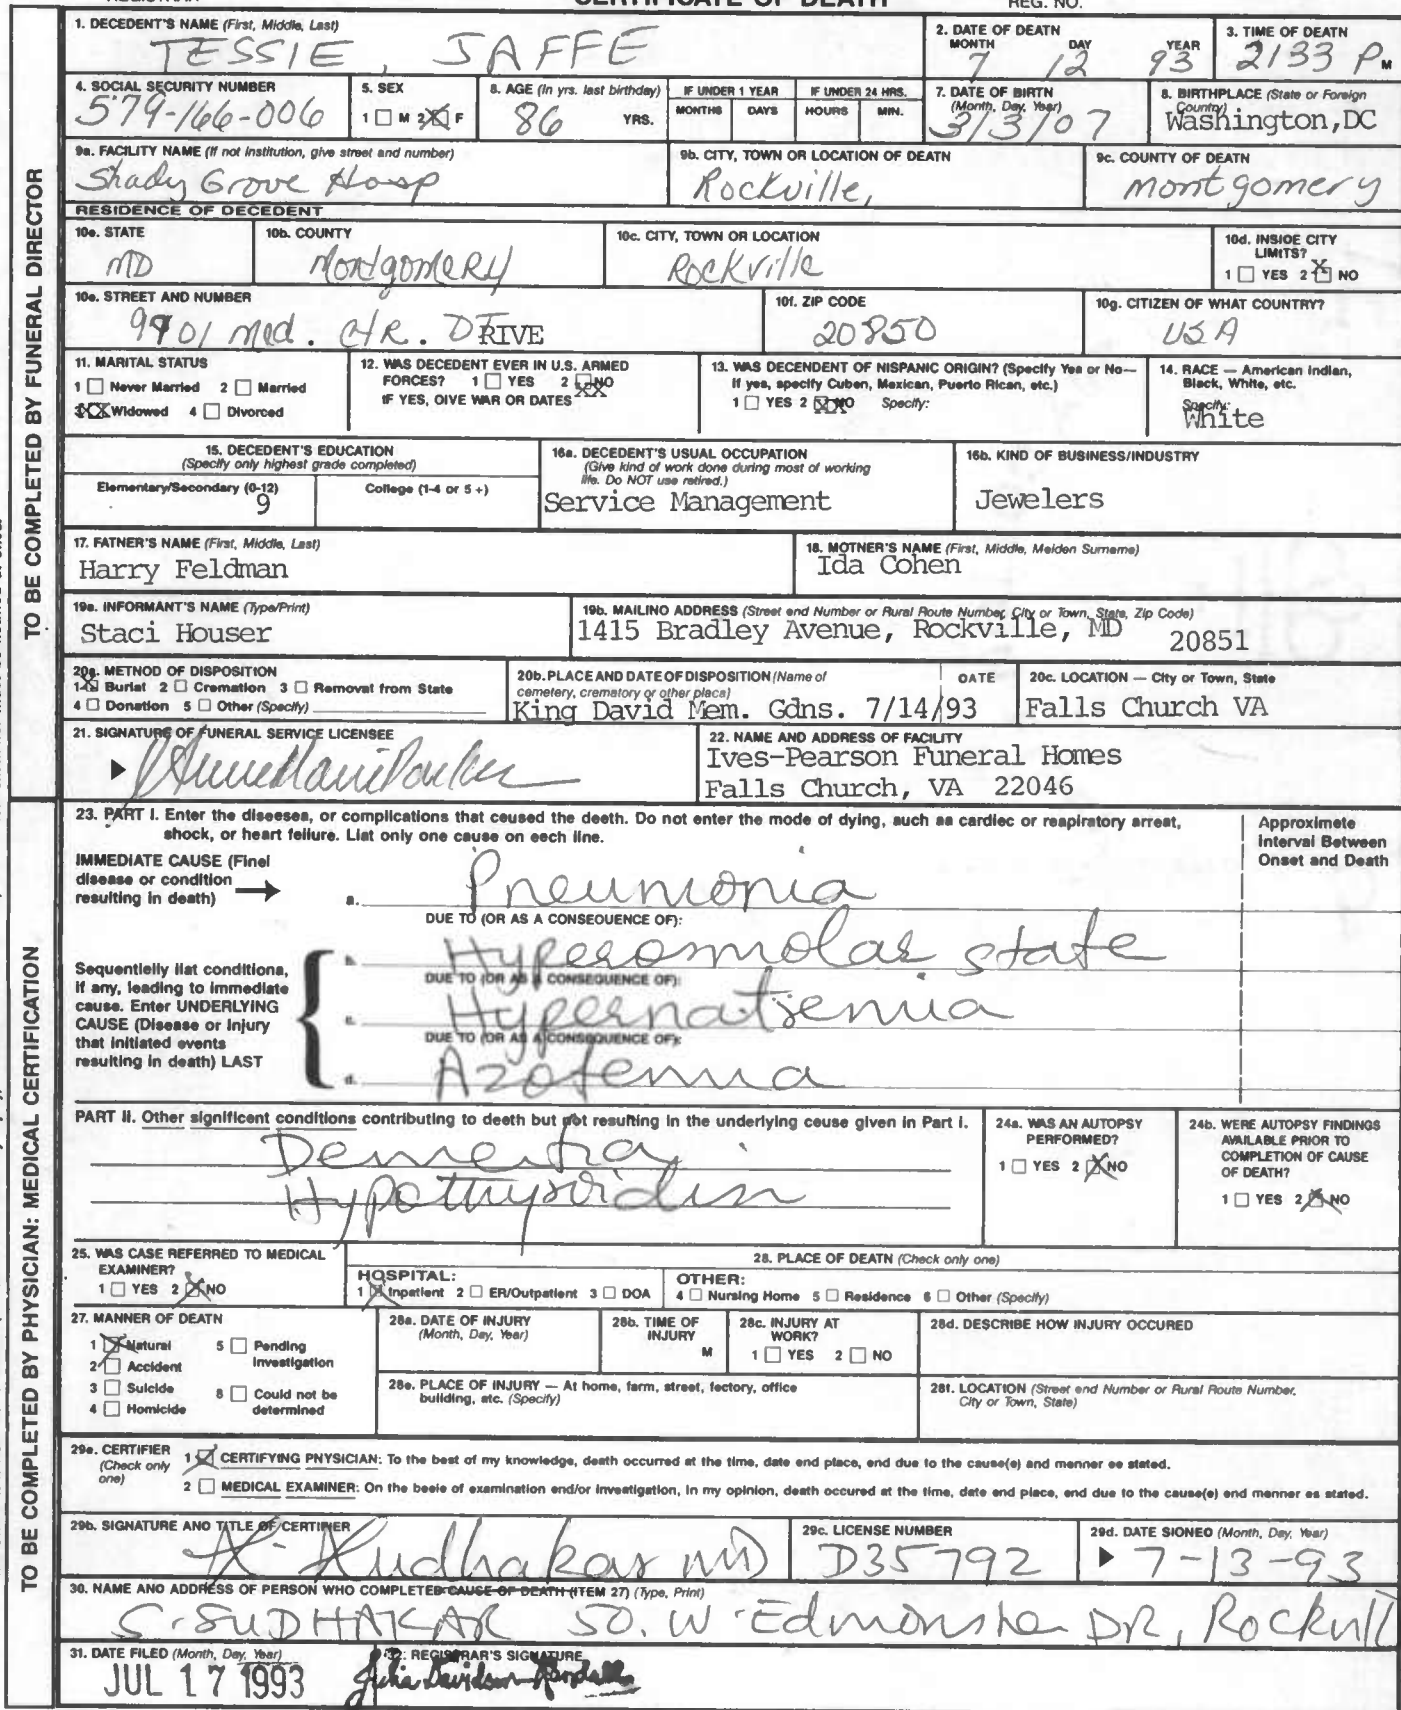 CERTIFICATE OF DEATH
REG. NO.
TO BE COMPLETED BY FUNERAL DIRECTOR
1. DECEDENT'S NAME (First, Middle, Last)
TESSIE, JAFFE
2. DATE OF DEATH
MONTH DAY YEAR
7 12 93
3. TIME OF DEATH
2133 P M
4. SOCIAL SECURITY NUMBER
579-166-006
5. SEX
1 M 2 X F
8. AGE (In yrs. last birthday)
86 YRS.
IF UNDER 1 YEAR
MONTHS DAYS
IF UNDER 24 HRS.
HOURS MIN.
7. DATE OF BIRTN
(Month, Day, Year)
3/3/07
8. BIRTHPLACE (State or Foreign
Country)
Washington,DC
9a. FACILITY NAME (If not institution, give street and number)
Shady Grove Hosp
9b. CITY, TOWN OR LOCATION OF DEATH
Rockville,
9c. COUNTY OF DEATH
Montgomery
RESIDENCE OF DECEDENT
10e. STATE
MD
10b. COUNTY
Montgomery
10c. CITY, TOWN OR LOCATION
Rockville
10d. INSIDE CITY
LIMITS?
1 YES 2 X NO
10e. STREET AND NUMBER
9901 Med. CTR. DRIVE
10f. ZIP CODE
20850
10g. CITIZEN OF WHAT COUNTRY?
USA
11. MARITAL STATUS
1 Never Married 2 Married
3 XX Widowed 4 Divorced
12. WAS DECEDENT EVER IN U.S. ARMED
FORCES? 1 YES 2 XX NO
IF YES, OIVE WAR OR DATES
13. WAS DECENDENT OF NISPANIC ORIGIN? (Specify Yes or No—
If yes, specify Cuben, Mexican, Puerto Rican, etc.)
1 YES 2 XX NO Specify:
14. RACE — American Indian,
Black, White, etc.
Specify:
White
15. DECEDENT'S EDUCATION
(Specify only highest grade completed)
Elementary/Secondary (0-12)
9
College (1-4 or 5 +)
16a. DECEDENT'S USUAL OCCUPATION
(Give kind of work done during most of working
life. Do NOT use retired.)
Service Management
16b. KIND OF BUSINESS/INDUSTRY
Jewelers
17. FATNER'S NAME (First, Middle, Last)
Harry Feldman
18. MOTNER'S NAME (First, Middle, Meiden Surname)
Ida Cohen
19a. INFORMANT'S NAME (Type/Print)
Staci Houser
19b. MAILINO ADDRESS (Street end Number or Rural Route Number, City or Town, State, Zip Code)
1415 Bradley Avenue, Rockville, MD 20851
20a. METNOD OF DISPOSITION
1 X Burial 2 Cremation 3 Removat from State
4 Donation 5 Other (Specify)
20b. PLACE AND DATE OF DISPOSITION (Name of
cemetery, crematory or other place)
DATE
King David Mem. Gdns. 7/14/93
20c. LOCATION — City or Town, State
Falls Church VA
21. SIGNATURE OF FUNERAL SERVICE LICENSEE
22. NAME AND ADDRESS OF FACILITY
Ives-Pearson Funeral Homes
Falls Church, VA 22046
TO BE COMPLETED BY PHYSICIAN: MEDICAL CERTIFICATION
23. PART I. Enter the diseesea, or complications that ceused the death. Do not enter the mode of dying, auch aa cardiec or reapiratory arreat,
shock, or heart feilure. Liat only one cause on eech line.
Approximete
Interval Between
Onset and Death
IMMEDIATE CAUSE (Finel
disease or condition
resulting in death)
a. Pneumonia
DUE TO (OR AS A CONSEOUENCE OF):
Sequentielly liat conditiona,
if any, leading to immediate
cause. Enter UNDERLYING
CAUSE (Disease or Injury
that initiated events
resulting in death) LAST
b. Hyperosmolar state
DUE TO (OR AS A CONSEQUENCE OF):
c. Hypernatremia
DUE TO (OR AS A CONSEQUENCE OF):
d. Azotemia
PART II. Other significent conditions contributing to death but not resulting in the underlying ceuse given in Part I.
Dementia
Hypothyroidism
24a. WAS AN AUTOPSY
PERFORMED?
1 YES 2 X NO
24b. WERE AUTOPSY FINDINGS
AVAILABLE PRIOR TO
COMPLETION OF CAUSE
OF DEATH?
1 YES 2 X NO
25. WAS CASE REFERRED TO MEDICAL
EXAMINER?
1 YES 2 X NO
28. PLACE OF DEATH (Check only one)
HOSPITAL:
1 X Inpatient 2 ER/Outpatient 3 DOA
OTHER:
4 Nursing Home 5 Residence 6 Other (Specify)
27. MANNER OF DEATH
1 X Natural 5 Pending
2 Accident Investigation
3 Suicide 8 Could not be
4 Homicide determined
28a. DATE OF INJURY
(Month, Day, Year)
28b. TIME OF
INJURY
M
28c. INJURY AT
WORK?
1 YES 2 NO
28d. DESCRIBE HOW INJURY OCCURED
28e. PLACE OF INJURY — At home, farm, street, fectory, office
building, atc. (Specify)
281. LOCATION (Street end Number or Rural Route Number,
City or Town, State)
29e. CERTIFIER
(Check only
one)
1 CERTIFYING PNYSICIAN: To the best of my knowledge, death occurred at the time, date end place, end due to the cause(e) and menner ee stated.
2 MEDICAL EXAMINER: On the beele of examination end/or investigation, in my opinion, death occured at the time, date end place, end due to the cause(e) end manner es stated.
29b. SIGNATURE ANO TITLE OF CERTIFIER
Sudhakar MD
29c. LICENSE NUMBER
D35792
29d. DATE SIONEO (Month, Day, Year)
7-13-93
30. NAME ANO ADDRESS OF PERSON WHO COMPLETED CAUSE OF DEATH (ITEM 27) (Type, Print)
S. SUDHAKAR 50. W. Edmonston DR, Rockvill
31. DATE FILED (Month, Day, Year)
JUL 17 1993
32. REGISTRAR'S SIGNATURE
Julia Davidson-Randall